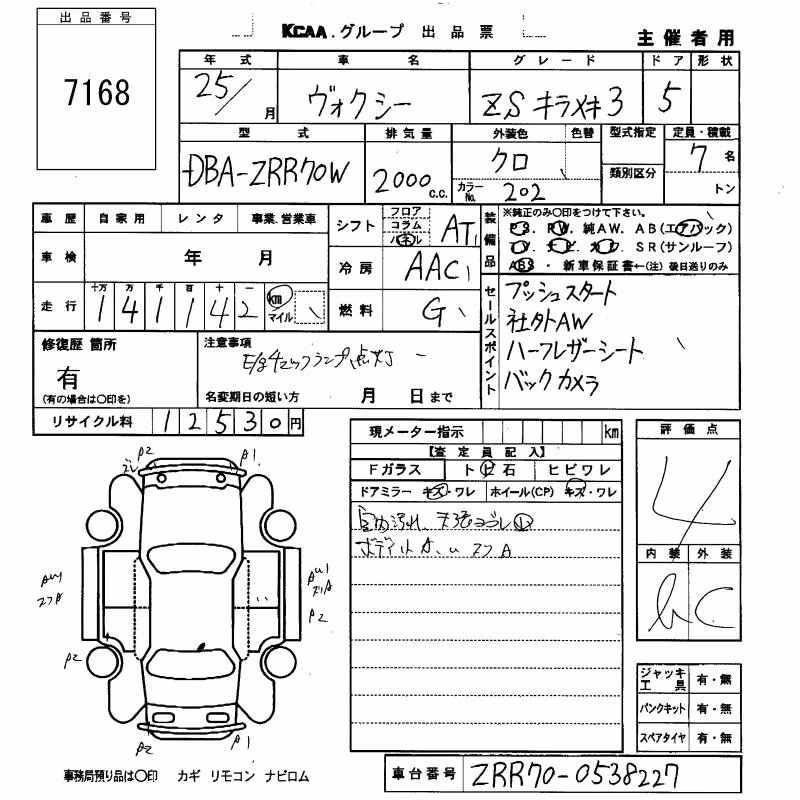 出品番号
7168
KCAA.グループ 出品票
主催者用
年式 車名 グレード ドア 形状
25/ 月 ヴォクシー ZS キラメキ3 5
型式 排気量 外装色 色替 型式指定 定員・積載
DBA-ZRR70W 2000 c.c. クロ 類別区分 7 名
カラーNo. 202 トン
車歴 自家用 レンタ 事業.営業車
シフト フロア コラム パネル AT
装備品 ※純正のみ〇印をつけて下さい。
PS. PW. 純AW. AB(エアバック)
TV. ナビ. カワ. SR(サンルーフ)
ABS ・ 新車保証書←(注) 後日送りのみ
車検 年 月
冷房 AAC
走行 十万 万 千 百 十 一
1 4 1 1 4 2 km マイル
燃料 G
セールスポイント
プッシュスタート
社外AW
ハーフレザーシート
バックカメラ
修復歴 箇所
有
(有の場合は〇印を)
注意事項
E/gチェックランプ点灯
名変期日の短い方 月 日まで
リサイクル料 12530円
現メーター指示 km
【査定員記入】
Fガラス トビ石 ヒビワレ
ドアミラー キズ・ワレ ホイール(CP) キズ・ワレ
評価点
4
内装 外装
C
A2 A1
A2
A2
A2 A1
ジャッキ工具 有・無
パンクキット 有・無
スペアタイヤ 有・無
事務局預り品は〇印 カギ リモコン ナビロム
車台番号 ZRR70-0538227